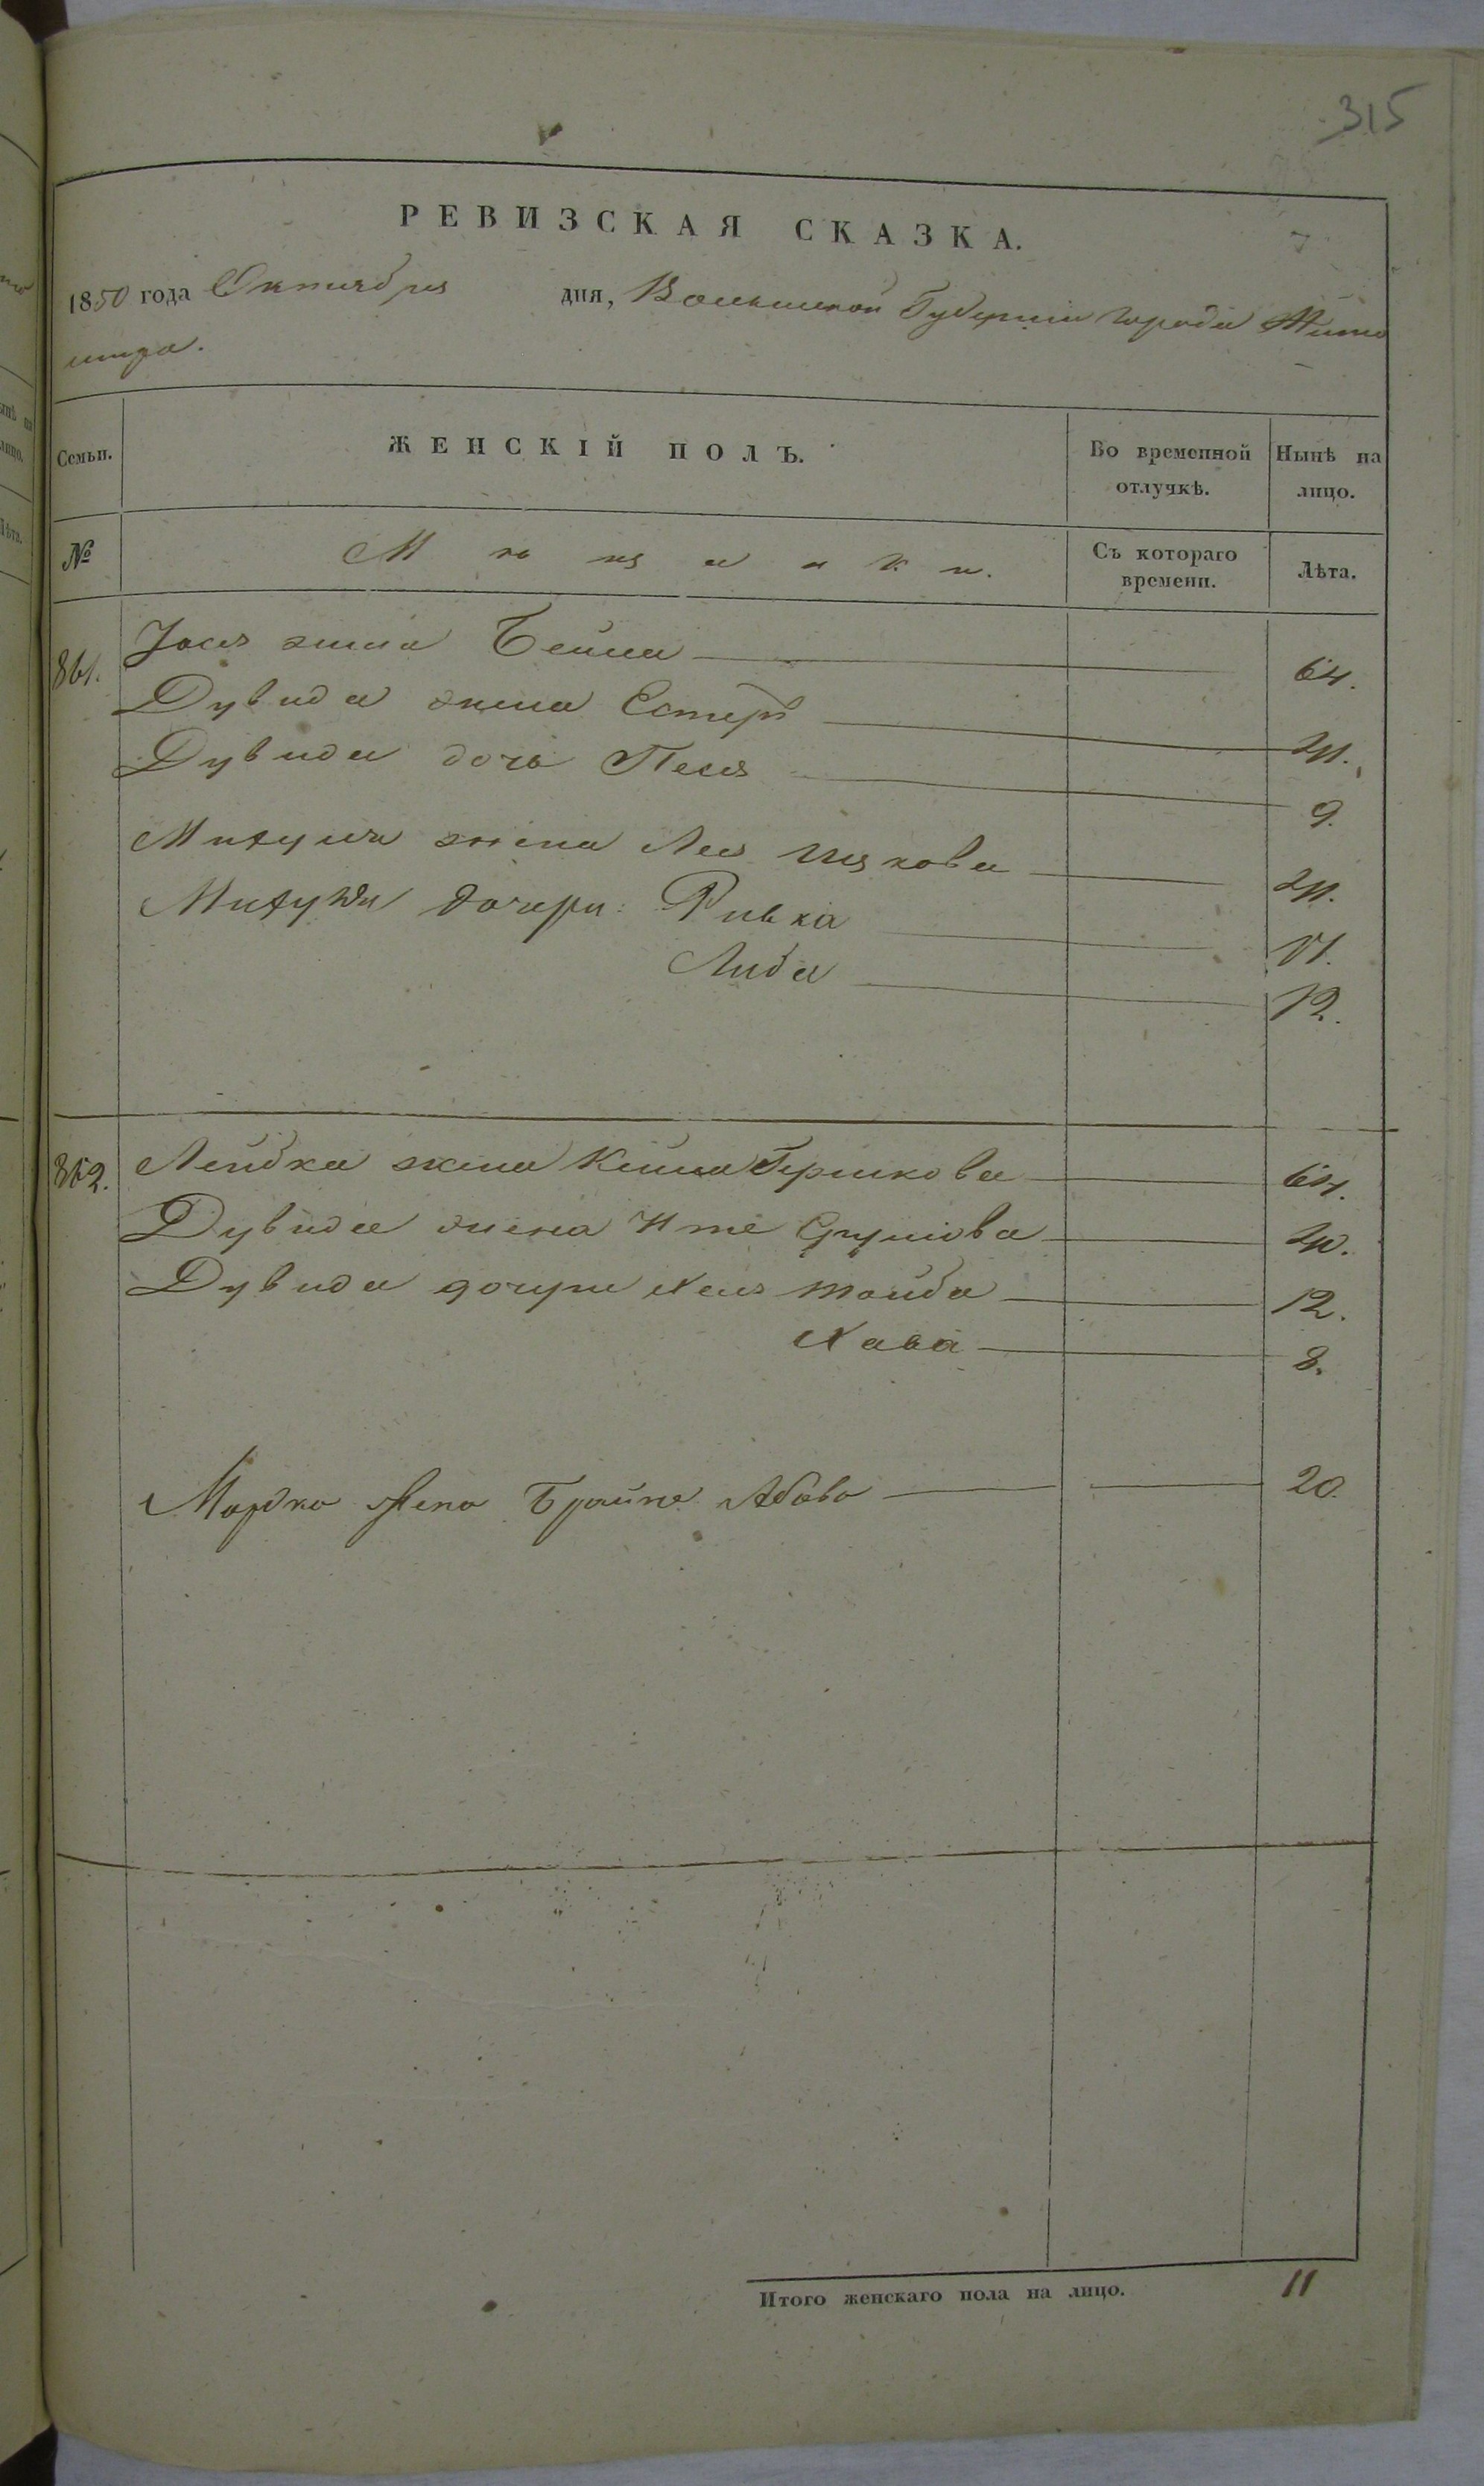 315
РЕВИЗСКАЯ СКАЗКА.
1850 года Октября дня, Волынской Губернiи города Жито
мира.
Семьи.
ЖЕНСКІЙ ПОЛЪ.
Во временной отлучкѣ.
Нынѣ на лицо.
№
Мѣщанки.
Съ котораго времени.
Лѣта.
861. Іося жена Бейла 64.
Дувида жена Естеръ
Дувида дочь Песя 9.
жена Лея
дочери: Ривка
Либа 12.
862. Лейбка жена Гершкова 64.
Дувида жена
Дувида дочери Хая Тойба 12.
Хава 8.
Мордка жена Брайна Абова 20.
Итого женскаго пола на лицо. 11